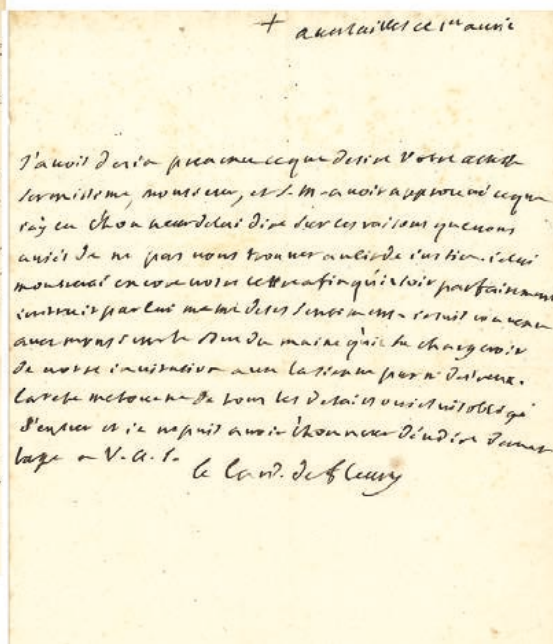 + a versailles ce 1er avril
J'avois desia prevenu ce que desire Votre altesse
serenissime, monsieur, et S. M. avoit approuvé ce que
j'ay eu l'honneur de lui dire sur les raisons que vous
aviés de ne pas vous trouver au lit de justice. ie lui
montrerai encore votre lettre afin qu'il soit parfaitement
instruit par lui meme de vos sentiments. ie suis convenu
avec monsieur le Duc du maine qu'il se chargeroit
de votre invitation avec la sienne par m. de Dreux.
la reste me tourne de tous les details ou ie suis obligé
d'entrer et ie ne puis avoir l'honneur d'en dire davan
tage a V. A. S.
le Card. de fleury